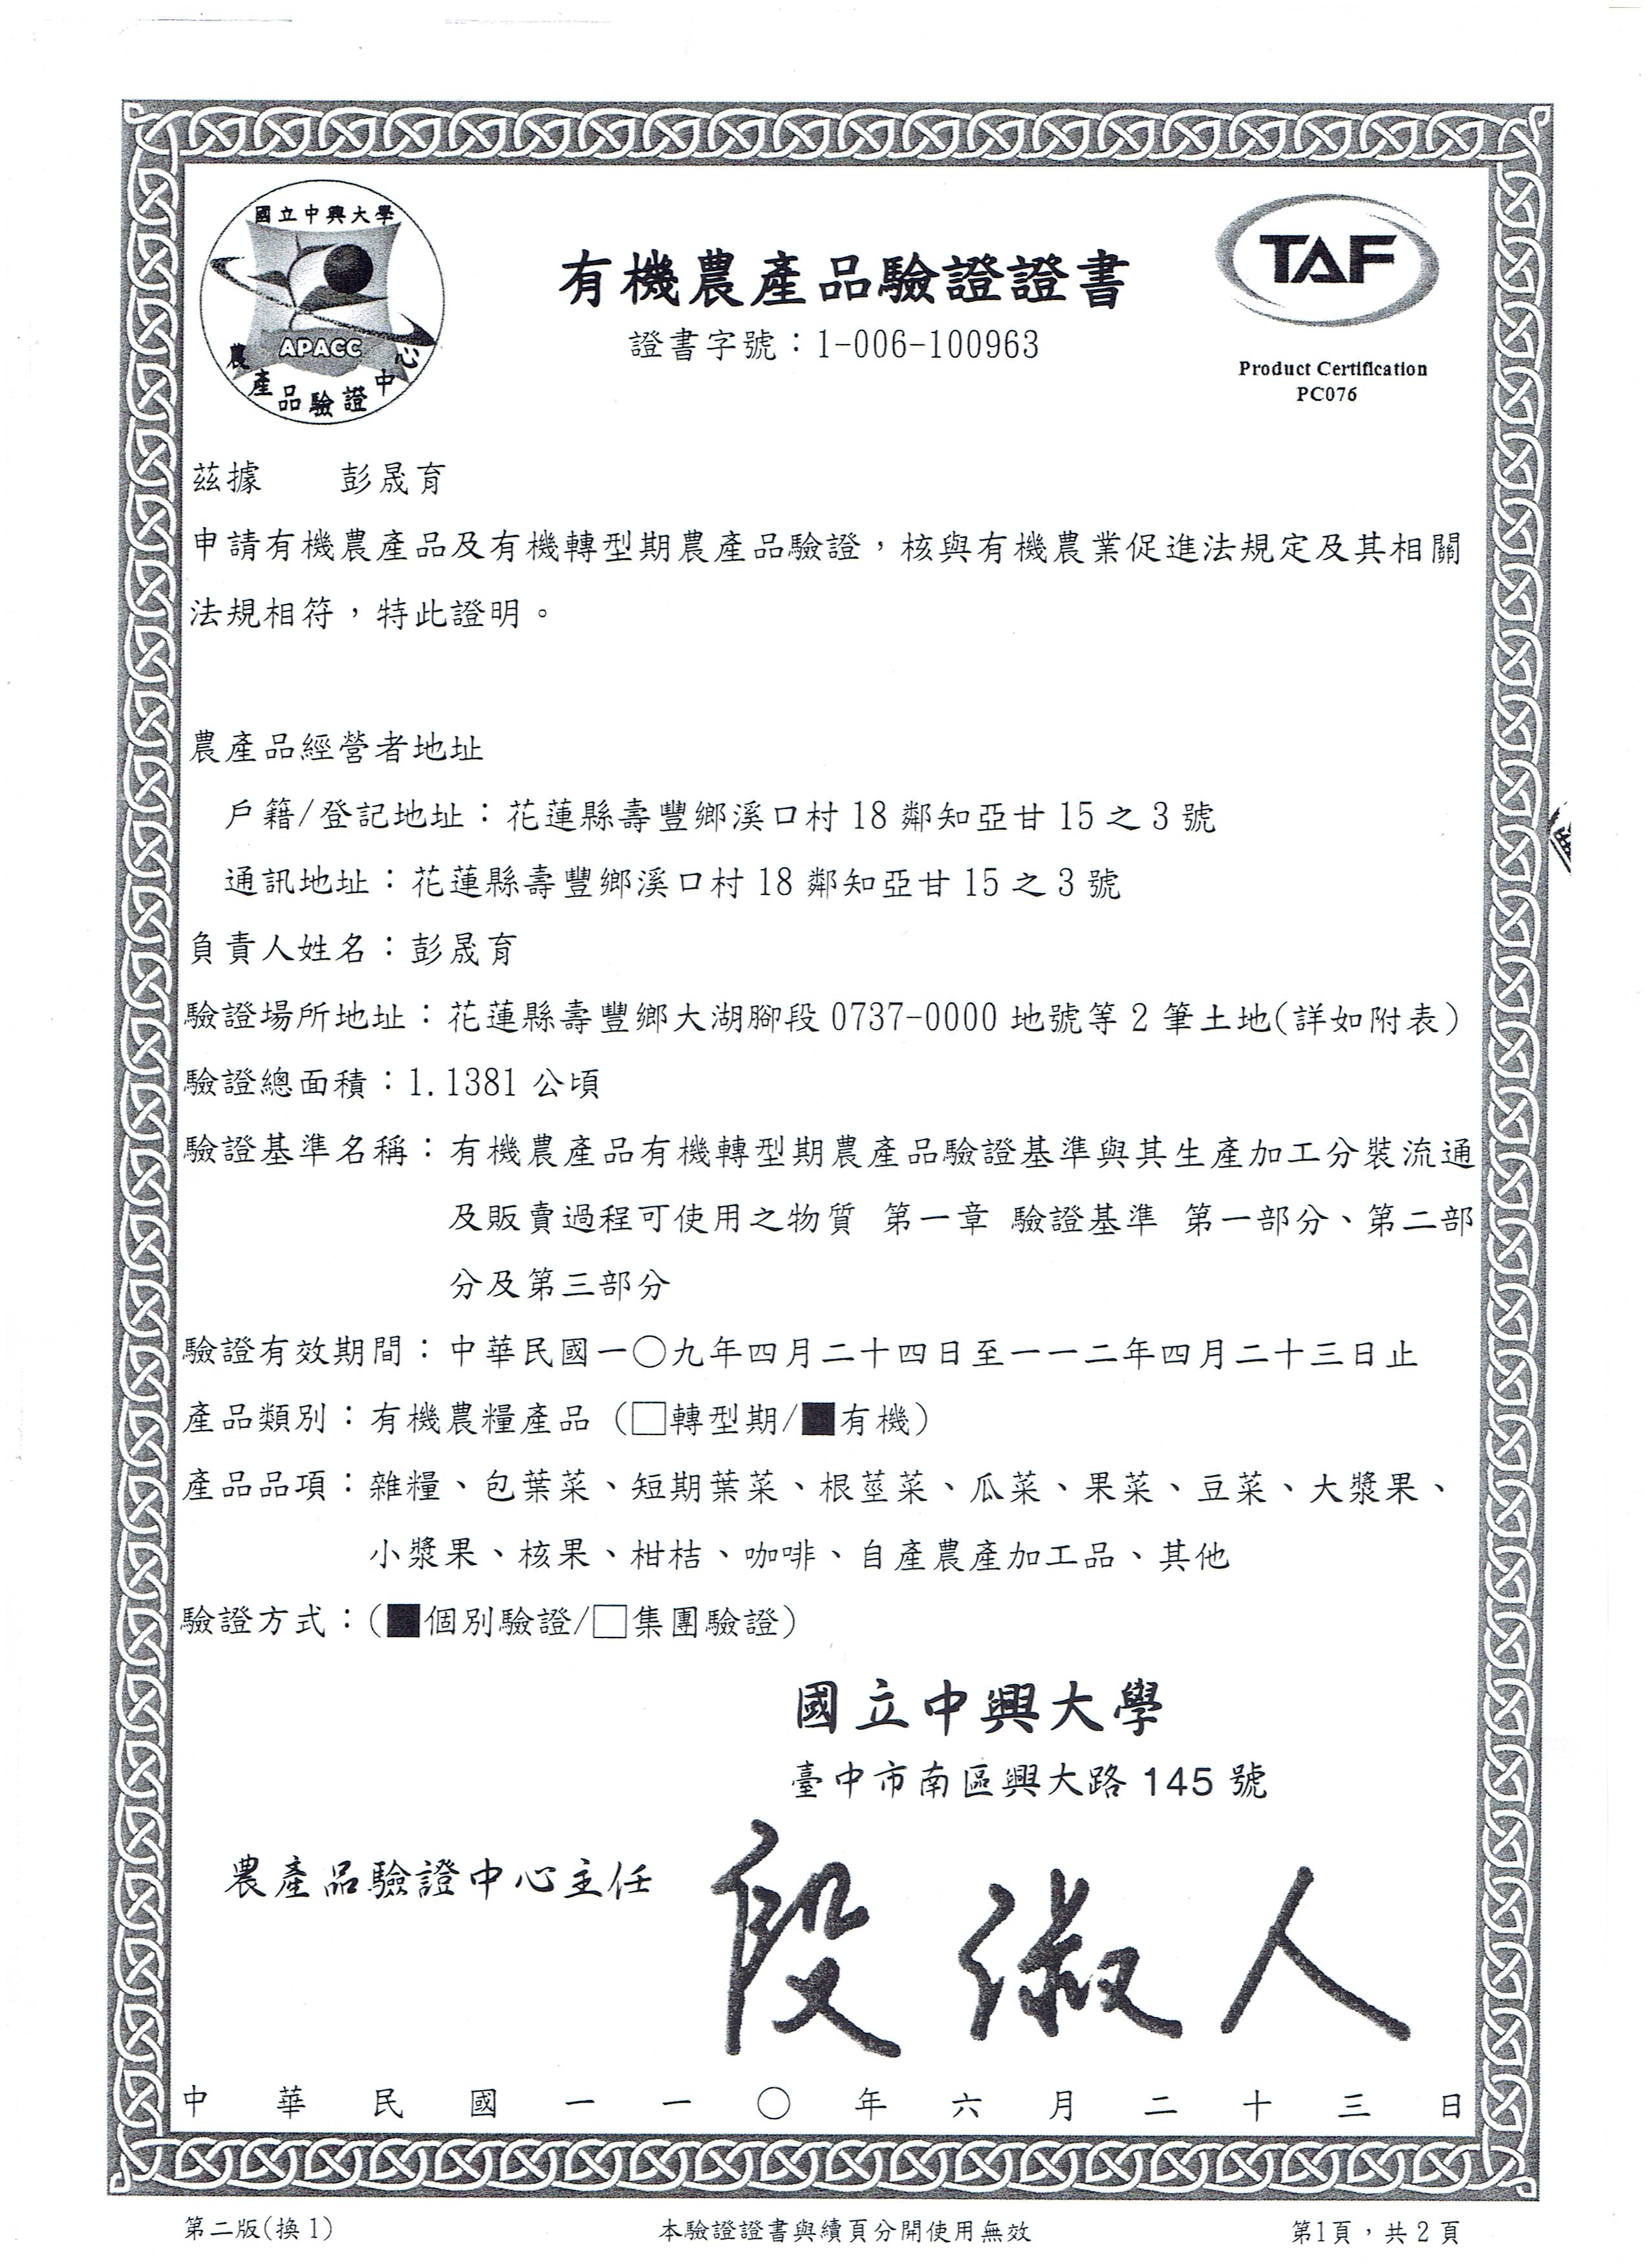 國立中興大學
APACC
農產品驗證中心
有機農產品驗證證書
證書字號：1-006-100963
TAF
Product Certification
PC076
茲據　　彭晟育
申請有機農產品及有機轉型期農產品驗證，核與有機農業促進法規定及其相關
法規相符，特此證明。
農產品經營者地址
戶籍/登記地址：花蓮縣壽豐鄉溪口村 18 鄰知亞甘 15 之 3 號
通訊地址：花蓮縣壽豐鄉溪口村 18 鄰知亞甘 15 之 3 號
負責人姓名：彭晟育
驗證場所地址：花蓮縣壽豐鄉大湖腳段 0737-0000 地號等 2 筆土地(詳如附表)
驗證總面積：1.1381 公頃
驗證基準名稱：有機農產品有機轉型期農產品驗證基準與其生產加工分裝流通
及販賣過程可使用之物質 第一章 驗證基準 第一部分、第二部
分及第三部分
驗證有效期間：中華民國一○九年四月二十四日至一一二年四月二十三日止
產品類別：有機農糧產品（□轉型期/■有機）
產品品項：雜糧、包葉菜、短期葉菜、根莖菜、瓜菜、果菜、豆菜、大漿果、
小漿果、核果、柑桔、咖啡、自產農產加工品、其他
驗證方式：(■個別驗證/□集團驗證)
國立中興大學
臺中市南區興大路 145 號
農產品驗證中心主任 段淑人
中華民國一一○年六月二十三日
第二版(換1)
本驗證證書與續頁分開使用無效
第1頁，共2頁